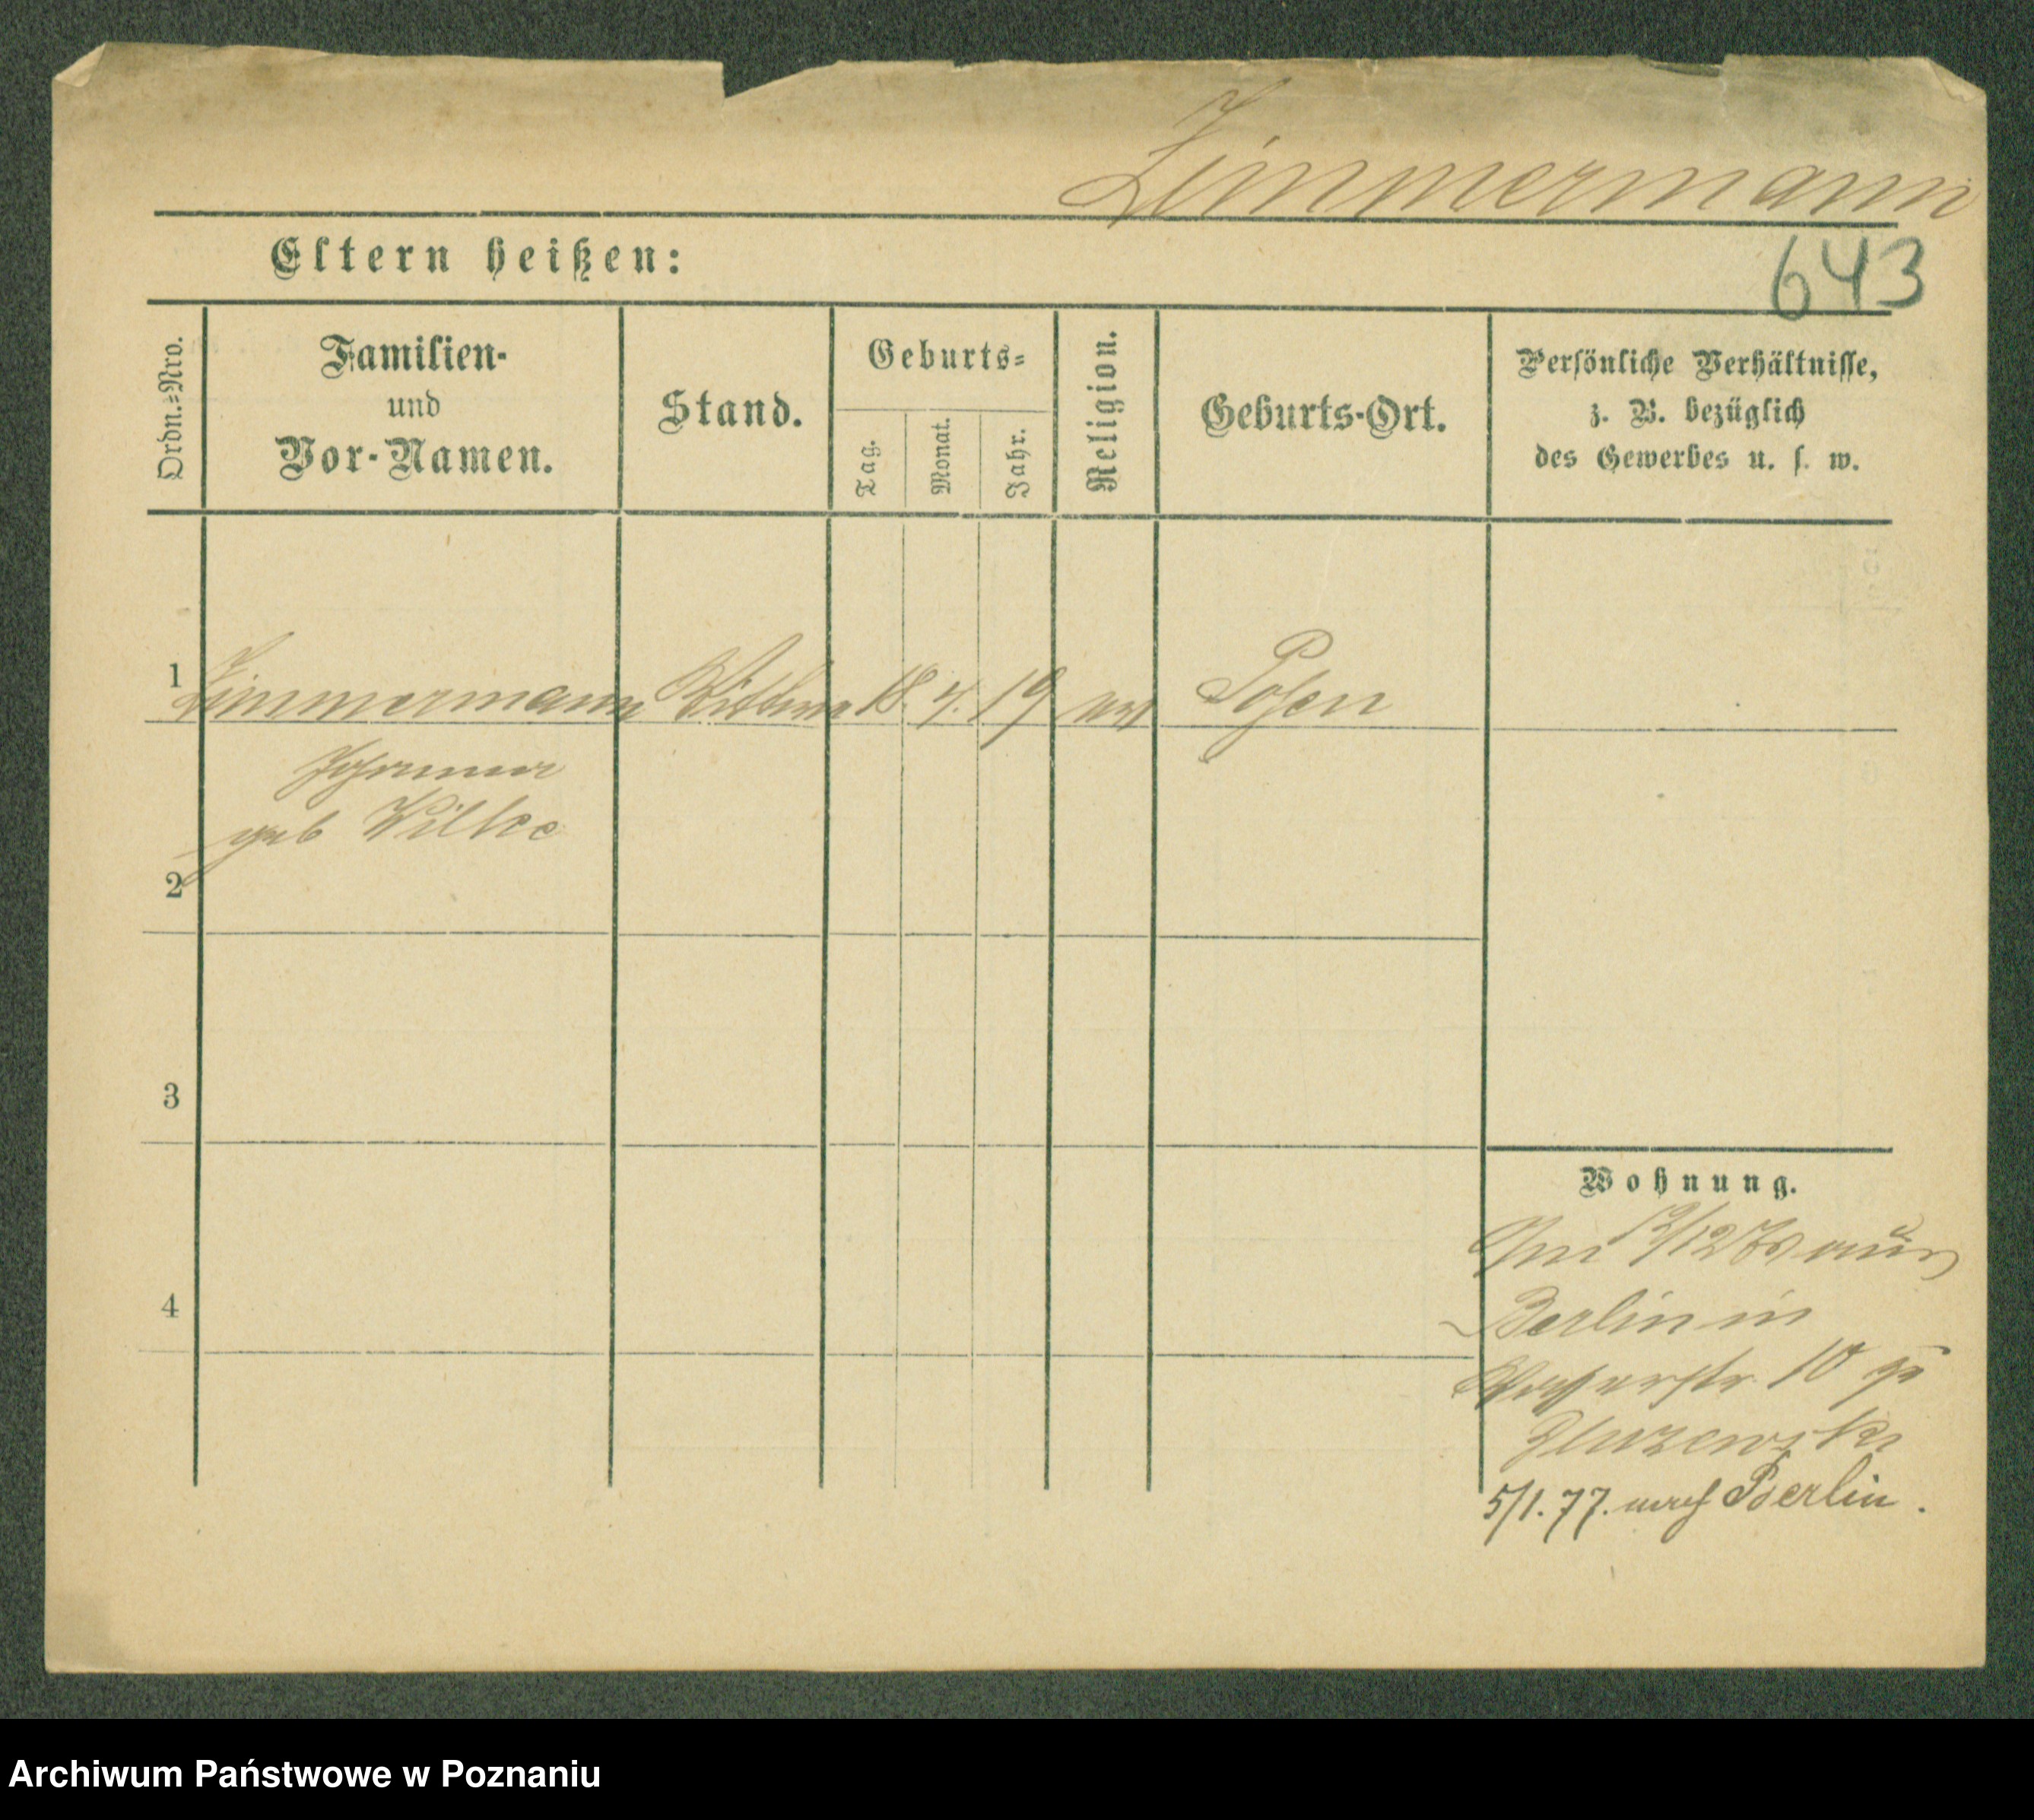 Zimmermann
643
Eltern heißen:
Ordn.-Nro.
Familien-
und
Vor-Namen.
Stand.
Geburts-
Tag.
Monat.
Jahr.
Religion.
Geburts-Ort.
Persönliche Verhältnisse,
z. B. bezüglich
des Gewerbes u. s. w.
1 Zimmermann Wittwe 18. 4. 19 ev Posen
Johanna
geb Wilke
2
3
4
Wohnung.
aus
Berlin in
10
5/1. 77. nach Berlin.
Archiwum Państwowe w Poznaniu